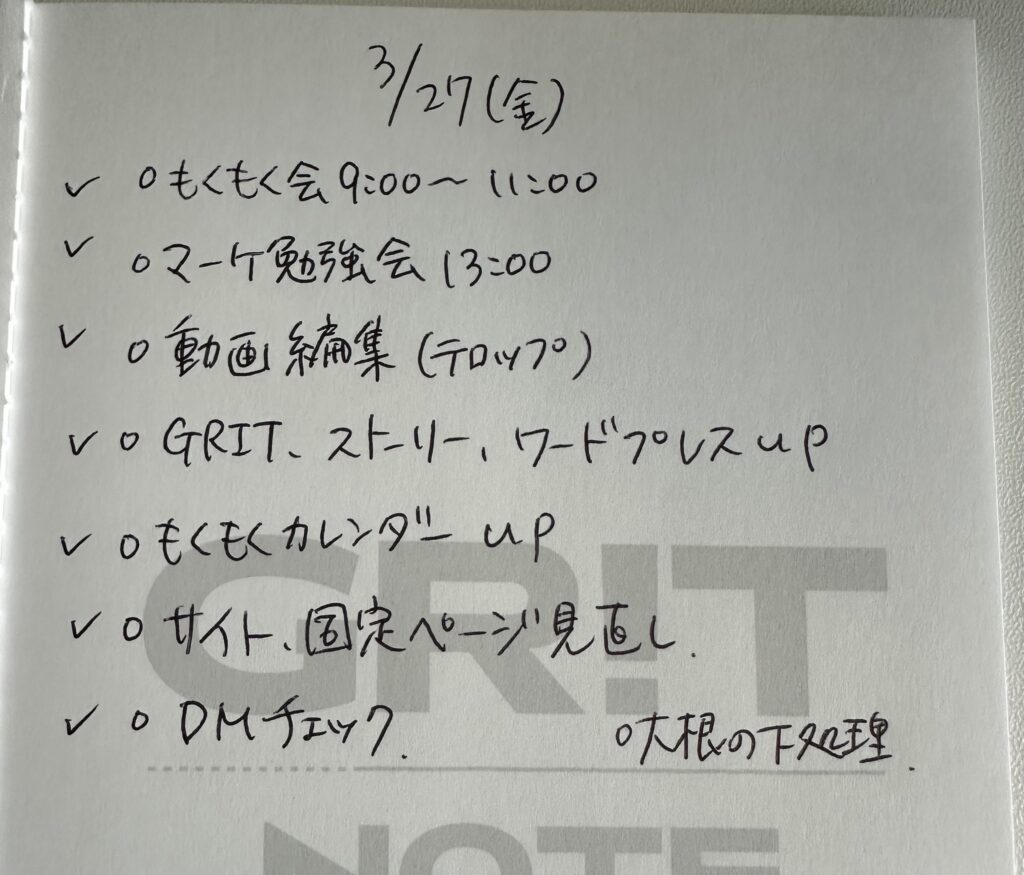 3/27(金)
✓ ○もくもく会 9:00〜11:00
✓ ○マーケ勉強会 13:00
✓ ○動画編集(テロップ)
✓ ○GRIT、ストーリー、ワードプレスup
✓ ○もくもくカレンダーup
✓ ○サイト、固定ページ見直し.
✓ ○DMチェック.
○大根の下処理.
GR!T
NOTE